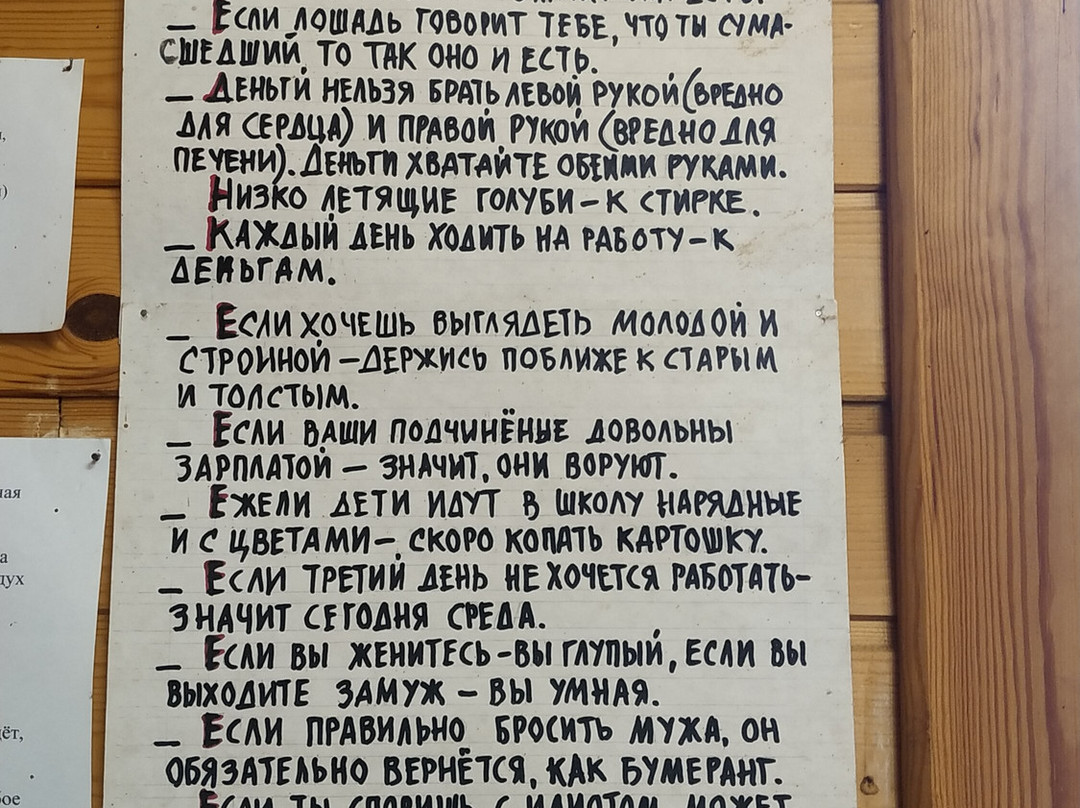 _ Если лошадь говорит тебе, что ты сума-
сшедший, то так оно и есть.
_ Деньги нельзя брать левой рукой (вредно
для сердца) и правой рукой (вредно для
печени). Деньги хватайте обеими руками.
Низко летящие голуби – к стирке.
_ Каждый день ходить на работу – к
деньгам.
_ Если хочешь выглядеть молодой и
стройной – держись поближе к старым
и толстым.
_ Если ваши подчинёные довольны
зарплатой – значит, они воруют.
_ Ежели дети идут в школу нарядные
и с цветами –, скоро копать картошку.
_ Если третий день не хочется работать-
значит сегодня среда.
_ Если вы женитесь - вы глупый, если вы
выходите замуж – вы умная.
_ Если правильно бросить мужа, он
обязательно вернётся, как бумеранг.
Если ты споришь с идиотом, может
дух